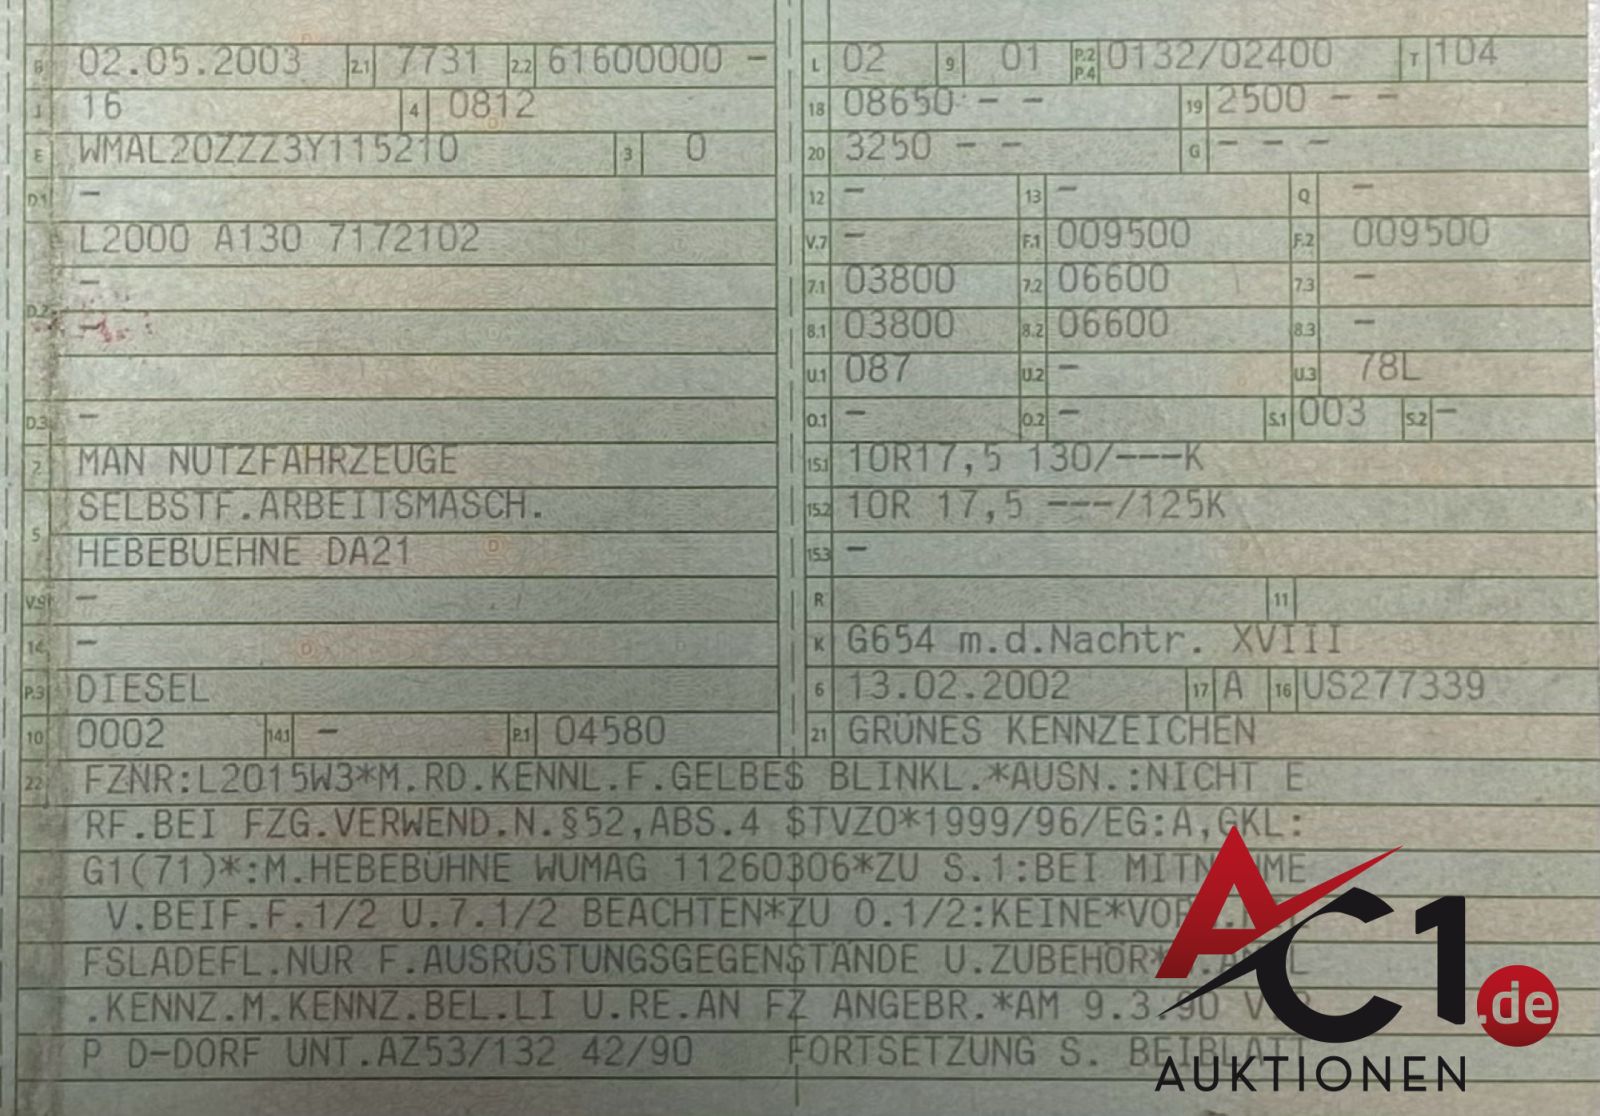 B 02.05.2003 2.1 7731 2.2 61600000 -
J 16 4 0812
E WMAL20ZZZ3Y115210 3 0
D.1 -
L2000 A130 7172102
-
D.2 -
D.3 -
2 MAN NUTZFAHRZEUGE
SELBSTF.ARBEITSMASCH.
5
HEBEBUEHNE DA21
V.9 -
14 -
P.3 DIESEL
10 0002 14.1 - P.1 04580
L 02 9 01 P.2 P.4 0132/02400 T 104
18 08650 - - 19 2500 - -
20 3250 - - G - - -
12 - 13 - Q -
V.7 - F.1 009500 F.2 009500
7.1 03800 7.2 06600 7.3 -
8.1 03800 8.2 06600 8.3 -
U.1 087 U.2 - U.3 78L
O.1 - O.2 - S.1 003 S.2 -
15.1 10R17,5 130/---K
15.2 10R 17,5 ---/125K
15.3 -
R 11
K G654 m.d.Nachtr. XVIII
6 13.02.2002 17 A 16 US277339
21 GRÜNES KENNZEICHEN
22 FZNR:L2015W3*M.RD.KENNL.F.GELBES BLINKL.*AUSN.:NICHT E
RF.BEI FZG.VERWEND.N.§52,ABS.4 STVZO*1999/96/EG:A,GKL:
G1(71)*:M.HEBEBÜHNE WUMAG 11260306*ZU S.1:BEI MITN ME
V.BEIF.F.1/2 U.7.1/2 BEACHTEN*ZU O.1/2:KEINE*
FSLADEFL.NUR F.AUSRÜSTUNGSGEGENSTÄNDE U.ZUBEHÖR*
.KENNZ.M.KENNZ.BEL.LI U.RE.AN FZ ANGEBR.*AM 9.3.90
P D-DORF UNT.AZ53/132 42/90 FORTSETZUNG S. BEIBLATT
AC1.de
AUKTIONEN